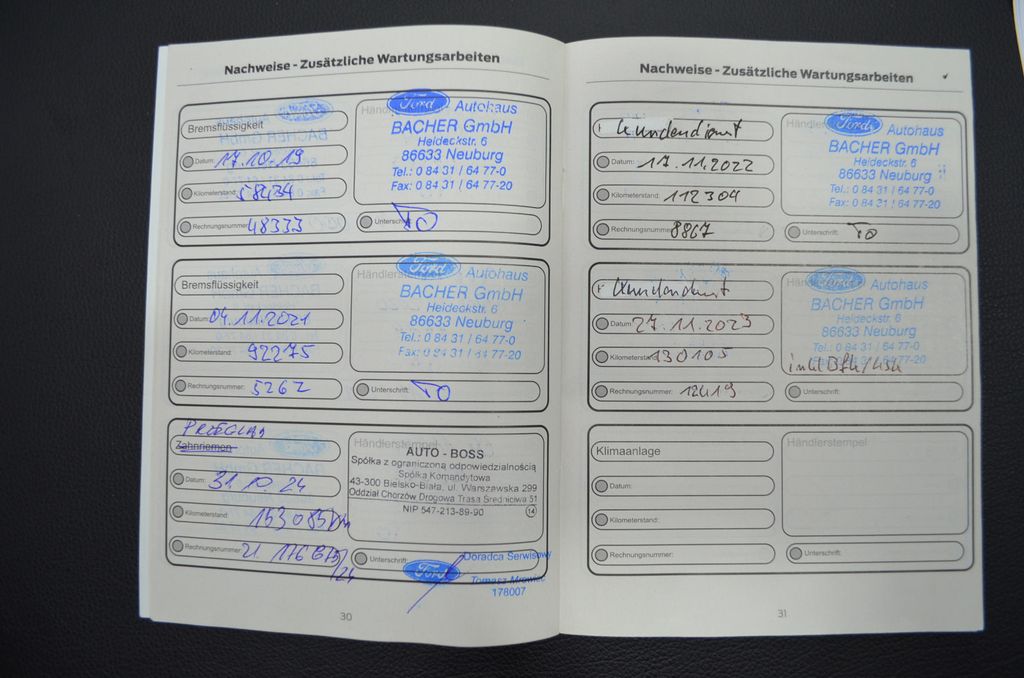 Nachweise - Zusätzliche Wartungsarbeiten
Bremsflüssigkeit
Datum: 17.10.19
Kilometerstand: 58434
Rechnungsnummer: 48333
Ford Autohaus
BACHER GmbH
Heideckstr. 6
86633 Neuburg
Tel.: 0 84 31 / 64 77-0
Fax: 0 84 31 / 64 77-20
Unterschrift:
Bremsflüssigkeit
Datum: 04.11.2021
Kilometerstand: 92275
Rechnungsnummer: 5262
Händlerstempel
Ford Autohaus
BACHER GmbH
Heideckstr. 6
86633 Neuburg
Tel.: 0 84 31 / 64 77-0
Fax: 0 84 31 / 64 77-20
Unterschrift:
PRZEGLĄD
Zahnriemen
Datum: 31 10 24
Kilometerstand: 153 085 km
Rechnungsnummer:
Händlerstempel
AUTO - BOSS
Spółka z ograniczoną odpowiedzialnością
Spółka Komandytowa
43-300 Bielsko-Biała, ul. Warszawska 299
Oddział Chorzów Drogowa Trasa Średnicowa 51
NIP 547-213-89-90 14
Unterschrift:
Ford Doradca Serwisowy
Tomasz
178007
30
Nachweise - Zusätzliche Wartungsarbeiten
Kundendienst
Datum: 17.11.2022
Kilometerstand: 112304
Rechnungsnummer: 8867
Ford Autohaus
BACHER GmbH
Heideckstr. 6
86633 Neuburg
Tel.: 0 84 31 / 64 77-0
Fax: 0 84 31 / 64 77-20
Unterschrift:
Kundendienst
Datum: 27.11.2023
Kilometerstand: 130105
Rechnungsnummer: 12419
Ford Autohaus
BACHER GmbH
Heideckstr. 6
86633 Neuburg
Tel.: 0 84 31 / 64 77-0
Fax: 0 84 31 / 64 77-20
Unterschrift:
Klimaanlage
Datum:
Kilometerstand:
Rechnungsnummer:
Händlerstempel
Unterschrift:
31